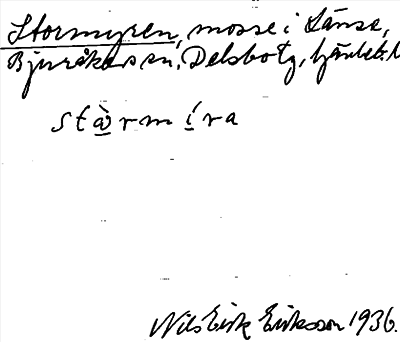 Stormyren, mosse i Länse,
Bjuråkers sn, Delsbotg,
stàrmíra
Nils Erik Eriksson 1936.